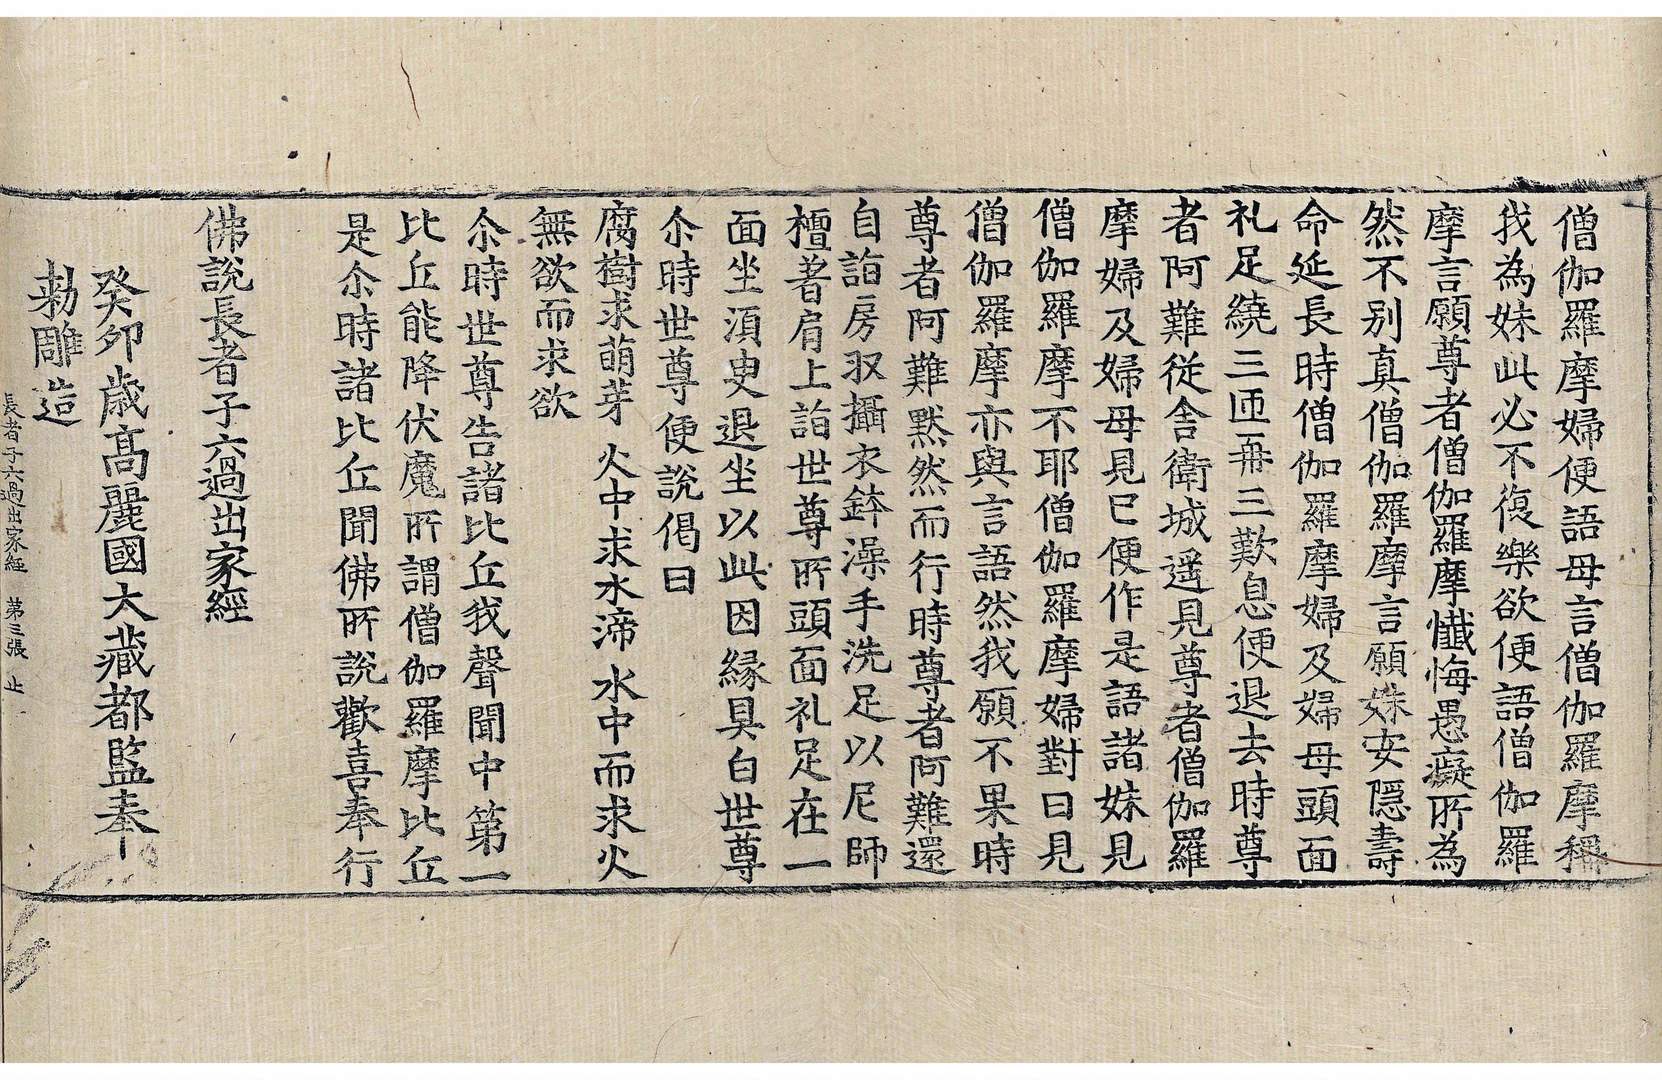 僧伽羅摩婦便語母言僧伽羅摩稱
我為妹此必不復樂欲便語僧伽羅
摩言願尊者僧伽羅摩懺悔愚癡所為
然不別真僧伽羅摩言願妹安隱壽
命延長時僧伽羅摩婦及婦母頭面
礼足繞三匝再三歎息便退去時尊
者阿難從舍衛城遥見尊者僧伽羅
摩婦及婦母見已便作是語諸妹見
僧伽羅摩不耶僧伽羅摩婦對曰見
僧伽羅摩亦與言語然我願不果時
尊者阿難默然而行時尊者阿難還
自詣房収攝衣鉢澡手洗足以尼師
檀著肩上詣世尊所頭面礼足在一
面坐湏臾退坐以此因緣具白世尊
尒時世尊便說偈曰
腐樹求萌芽 火中求水渧 水中而求火
無欲而求欲
尒時世尊告諸比丘我聲聞中第一
比丘能降伏魔所謂僧伽羅摩比丘
是尒時諸比丘聞佛所說歡喜奉行
佛說長者子六過出家經
癸卯歲高麗國大藏都監奉
勑雕造
長者子六過出家經 第三張 止